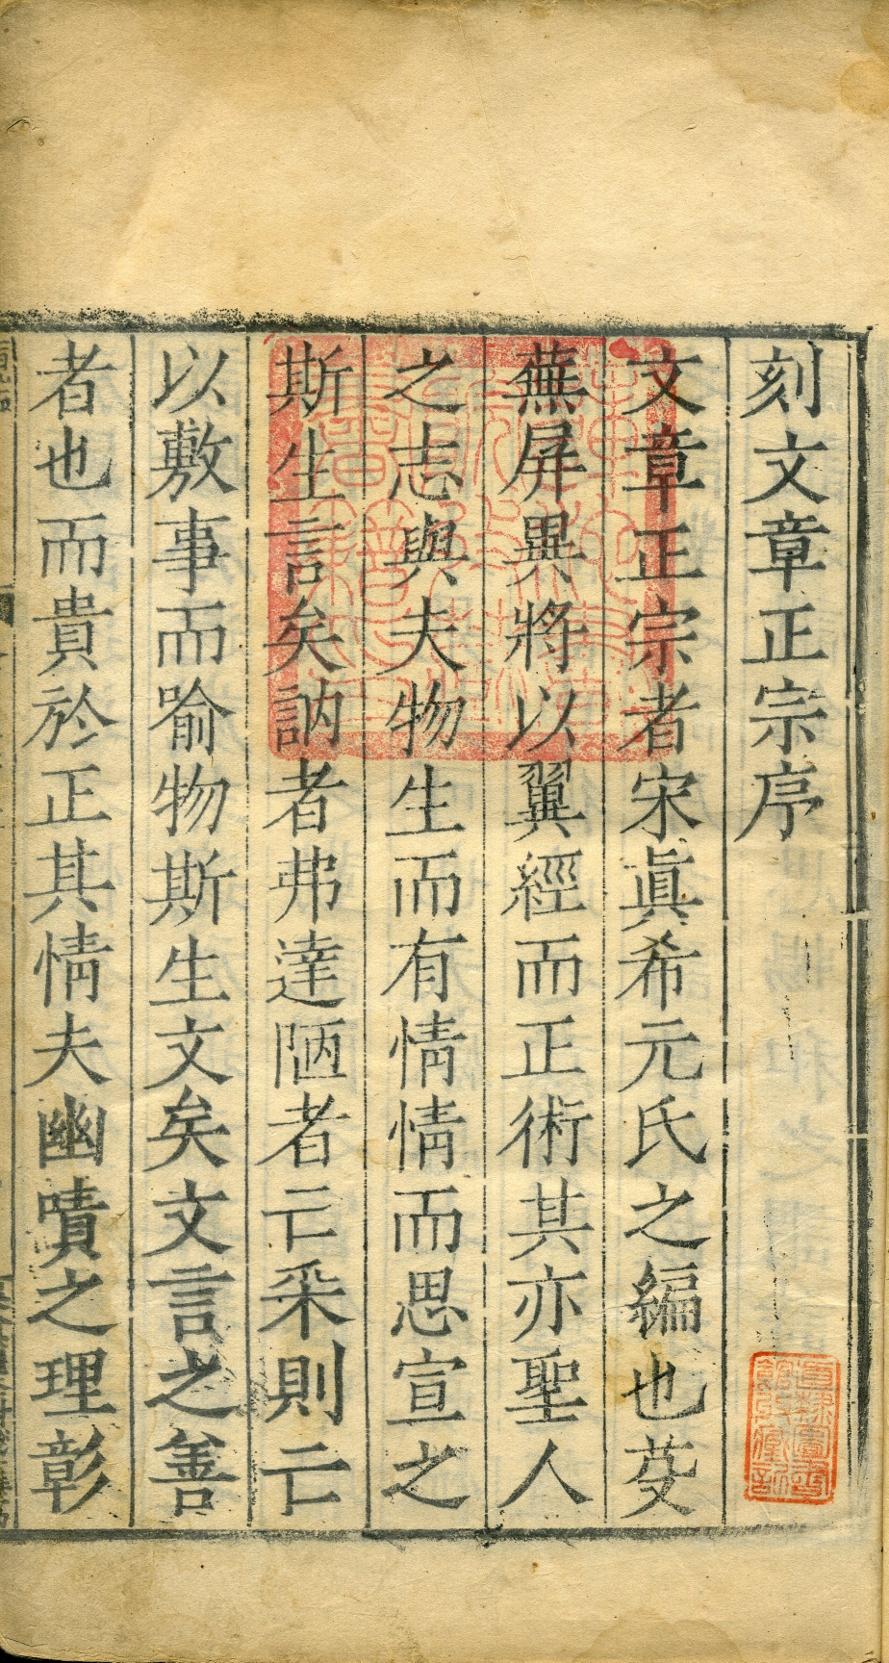 刻文章正宗序
文章正宗者宋眞希元氏之編也芟
蕪屏異將以翼經而正術其亦聖人
之志與夫物生而有情情而思宣之
斯生言矣訥者弗達陋者亡采則亡
以敷事而喻物斯生文矣文言之善
者也而貴於正其情夫幽嘖之理彰